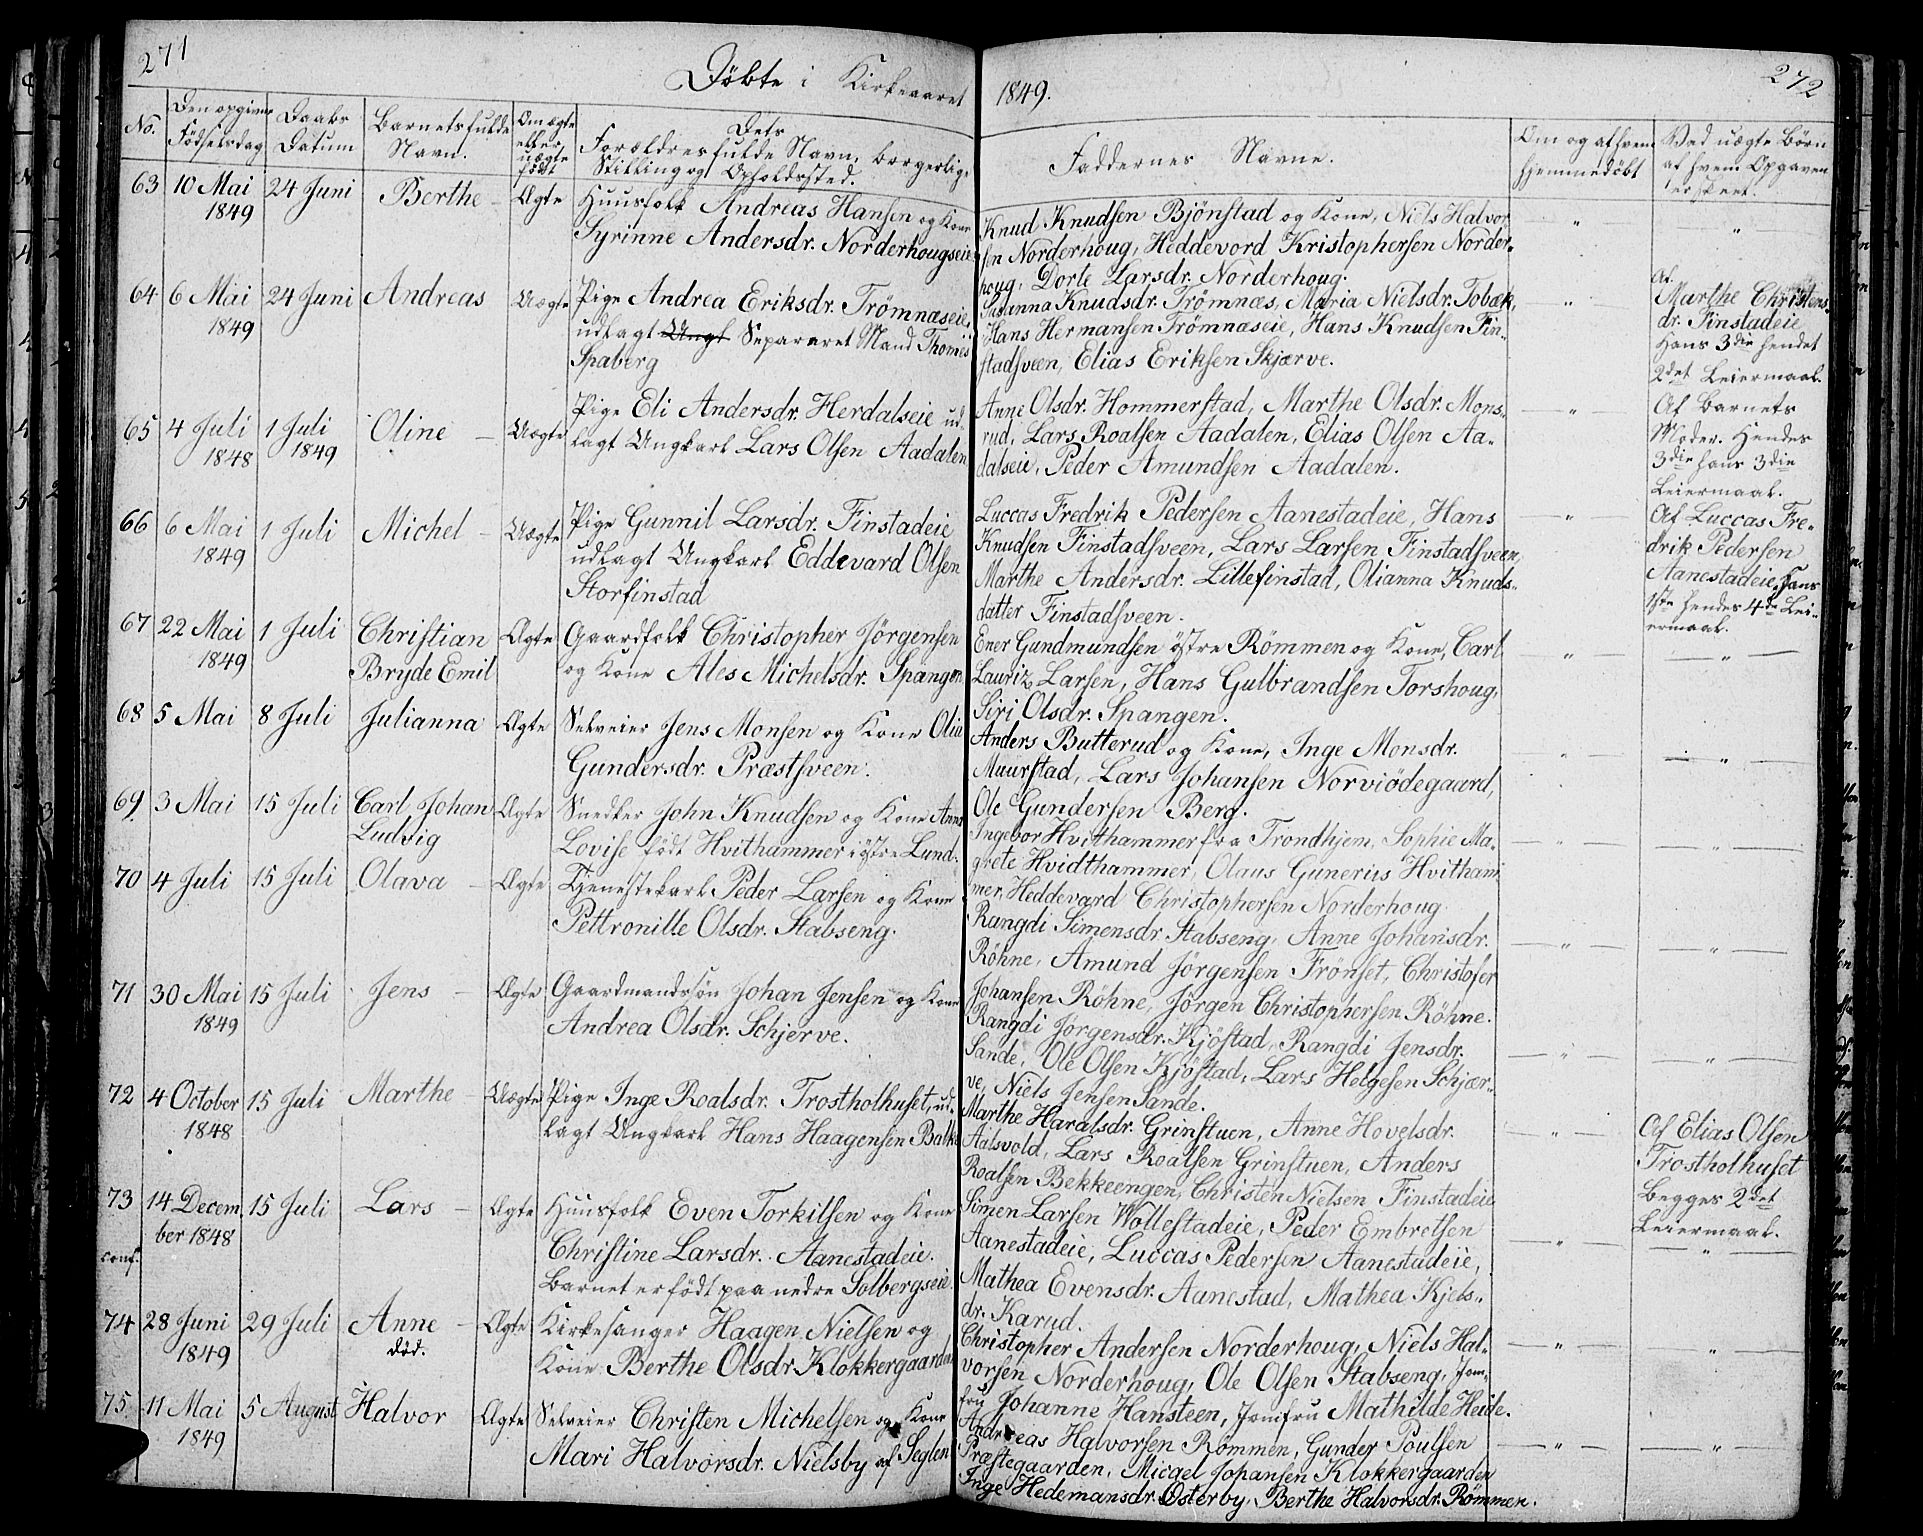 271
Döbte i Kirkeaaret
No.
Den opgivne Födselsdag
Daabs Datum
Barnets fulde Navn.
Om ægte eller uægte födt
Dets Forældres fulde Navn, borgerlige Stilling og Opholdssted.
63 10 Mai 24 Juni Berthe – Ægte Huusfolk Andreas Hansen og Kone
1849 Syrinne Andersdr. Norderhougseie
64 6 Mai 24 Juni Andreas Uægte Pige Andrea Eriksdr. Trömnæseie,
1849 udlagt Ungk Separaret Mand Thomes
Spaberg
Pige Eli Andersdr. Herdalseie ud-
65 4 Juli 1 Juli Oline – Uægte lagt Ungkarl Lars Olsen Aadalen
1848 1849
66 6 Mai 1 Juli Michel – Uægte Pige Gunnil Larsdr. Finstadeie
1849 udlagt Ungkarl Eddevard Olsen
Storfinstad
67 22 Mai 1 Juli Christian Ægte Gaardfolk Christopher Jörgensen
1849 Bryde Emil og Kone Ales Michelsdr. Spangen
68 5 Mai 8 Juli Julianna Ægte Selveier Jens Monsen og Kone Olia
Gundersdr. Præstsveen.
69. 3 Mai 15 Juli Carl Johan Ægte Snedker John Knudsen og Kone Anne
Ludvig Lovise födt Hvithammer i östre Lund.
70 4 Juli 15 Juli Olava – Ægte Tjenestekarl Peder Larsen og Kone
Pettronille Olsdr. Stabseng.
71 30 Mai 15 Juli Jens – Ægte Gaardmandssön Johan Jensen og Kone
1849 Andrea Olsdr. Schjerve.
72 4 October 15 Juli Marthe – Uægte Pige Inge Roalsdr. Trostholhuset, ud-
1848 lagt Ungkarl Hans Haagensen Balke
73 14 Decem 15 Juli Lars – Ægte Huusfolk Even Torkilsen og Kone
ber 1848 Christine Larsdr. Aanestadeie.
conf. Barnet er födt paa nedre Solbergseie
74 28 Juni 29 Juli Anne – Ægte Kirkesanger Haagen Nielsen og
1849 död. Kone Berthe Olsdr. Klokkergaarden
75. 11 Mai 5 August Halvor Ægte Selveier Christen Michelsen og Kone
1849 Mari Halvorsdr. Nielsby af Seglen
1849.
272
Faddernes Navne.
Om og af hvem hjemmedöbt
Ved uægte Börn af hvem Opgaven er skeet.
Knud Knudsen Bjönstad og Kone, Niels Halvor
sen Norderhoug, Heddevord Kristophersen Norder-
houg, Dorte Larsdr. Norderhoug.
Susanna Knudsdr. Trömnæs, Maria Nielsdr. Tobæk,
Hans Hermansen Trömnæseie, Hans Knudsen Fin-
stadsveen, Elias Eriksen Skjærve.
Af
Marthe Christens-
dr. Finstadeie
Hans 3die hendet
2det Leiermaal.
Anne Olsdr. Hommerstad, Marthe Olsdr. Mons-
rud, Lars Roalsen Aadalen, Elias Olsen Aa-
dalseie, Peder Amundsen Aadalen.
Af Barnets
Moder. Hendes
3die hans 3die
Leiermaal.
Luccas Fredrik Pedersen Aanestadeie, Hans
Knudsen Finstadsveen, Lars Larsen Finstadsveen,
Marthe Andersdr. Lillefinstad, Olianna Knuds-
datter Finstadsveen.
Af Luccas Fre-
drik Pedersen
Aanestadeie, Hans
1ste hendes 4de Lei-
ermaal.
Ener Gundmundsen östre Römmen og Kone, Carl
Lauriz Larsen, Hans Gulbrandsen Torshoug,
Siri Olsdr. Spangen.
Anders Butterud og Kone, Inge Monsdr.
Muurstad, Lars Johansen Norviödegaard,
Ole Gundersen Berg.
Ingebor Hvithammer fra Trondhjem, Sophie Ma-
grete Hvidthammer, Olaus Gunerius Hvitham
mer, Heddevard Christophersen Norderhoug
Rangdi Simensdr. Stabseng, Anne Johansdr.
Röhne, Amund Jörgensen Frönset, Christofer
Johansen Röhne, Jörgen Christophersen Röhne.
Rangdi Jörgensdr. Kjöstad, Rangdi Jensdr.
Sande, Ole Olsen Kjöstad, Lars Helgesen Schjær-
ve, Niels Jensen Sande.
Marthe Haralsdr. Grinstuen, Anne Hovelsdr.
Aalsvold, Lars Roalsen Grinstuen, Anders
Roalsen Bekkeengen, Christen Nielsen Finstadeie
Af Elias Olsen
Trostholhuset
Begges 2det
Leiermaal.
Simen Larsen Wollestadeie, Peder Embretsen
Aanestadeie, Luccas Pedersen Aanestadeie,
Mathea Evensdr. Aanestad, Mathea Kjels-
dr. Karud.
Christopher Andersen Norderhoug, Niels Hal-
vorsen Norderhoug, Ole Olsen Stabseng, Jom-
fru Johanne Hansteen, Jomfru Mathilde Heide.
Andreas Halvorsen Römmen, Gunder Poulsen
Præstegaarden, Micael Johansen Klokkergaarden
Inge Hedemansdr. Österby, Berthe Halvorsdr. Römmen.